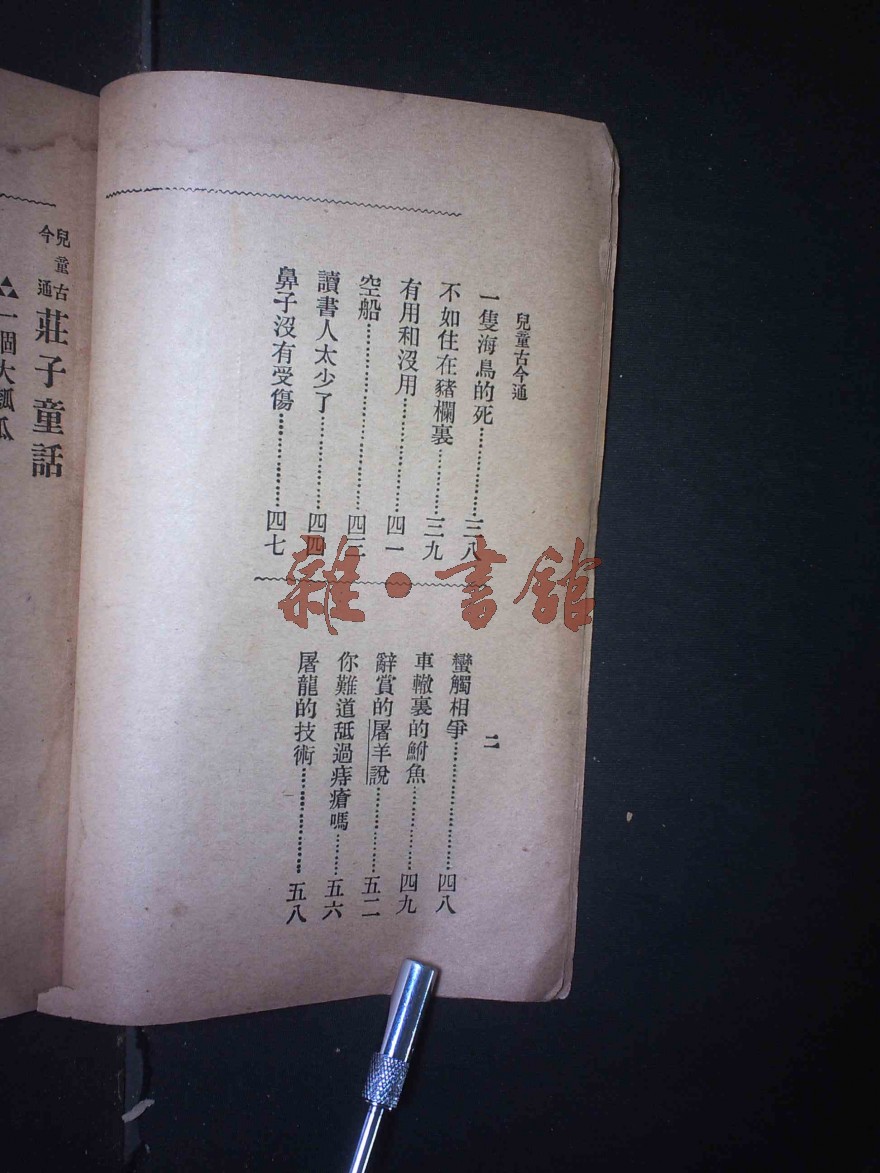 兒童古今通
一隻海鳥的死…………三八
不如住在豬欄裏…………三九
有用和沒用…………四一
空船…………四三
讀書人太少了…………四四
鼻子沒有受傷…………四七
二
蠻觸相爭…………四八
車轍裏的鮒魚…………四九
辭賞的屠羊說…………五二
你難道舐過痔瘡嗎…………五六
屠龍的技術…………五八
兒童古今通
莊子童話
一個大瓢瓜
雜·書館